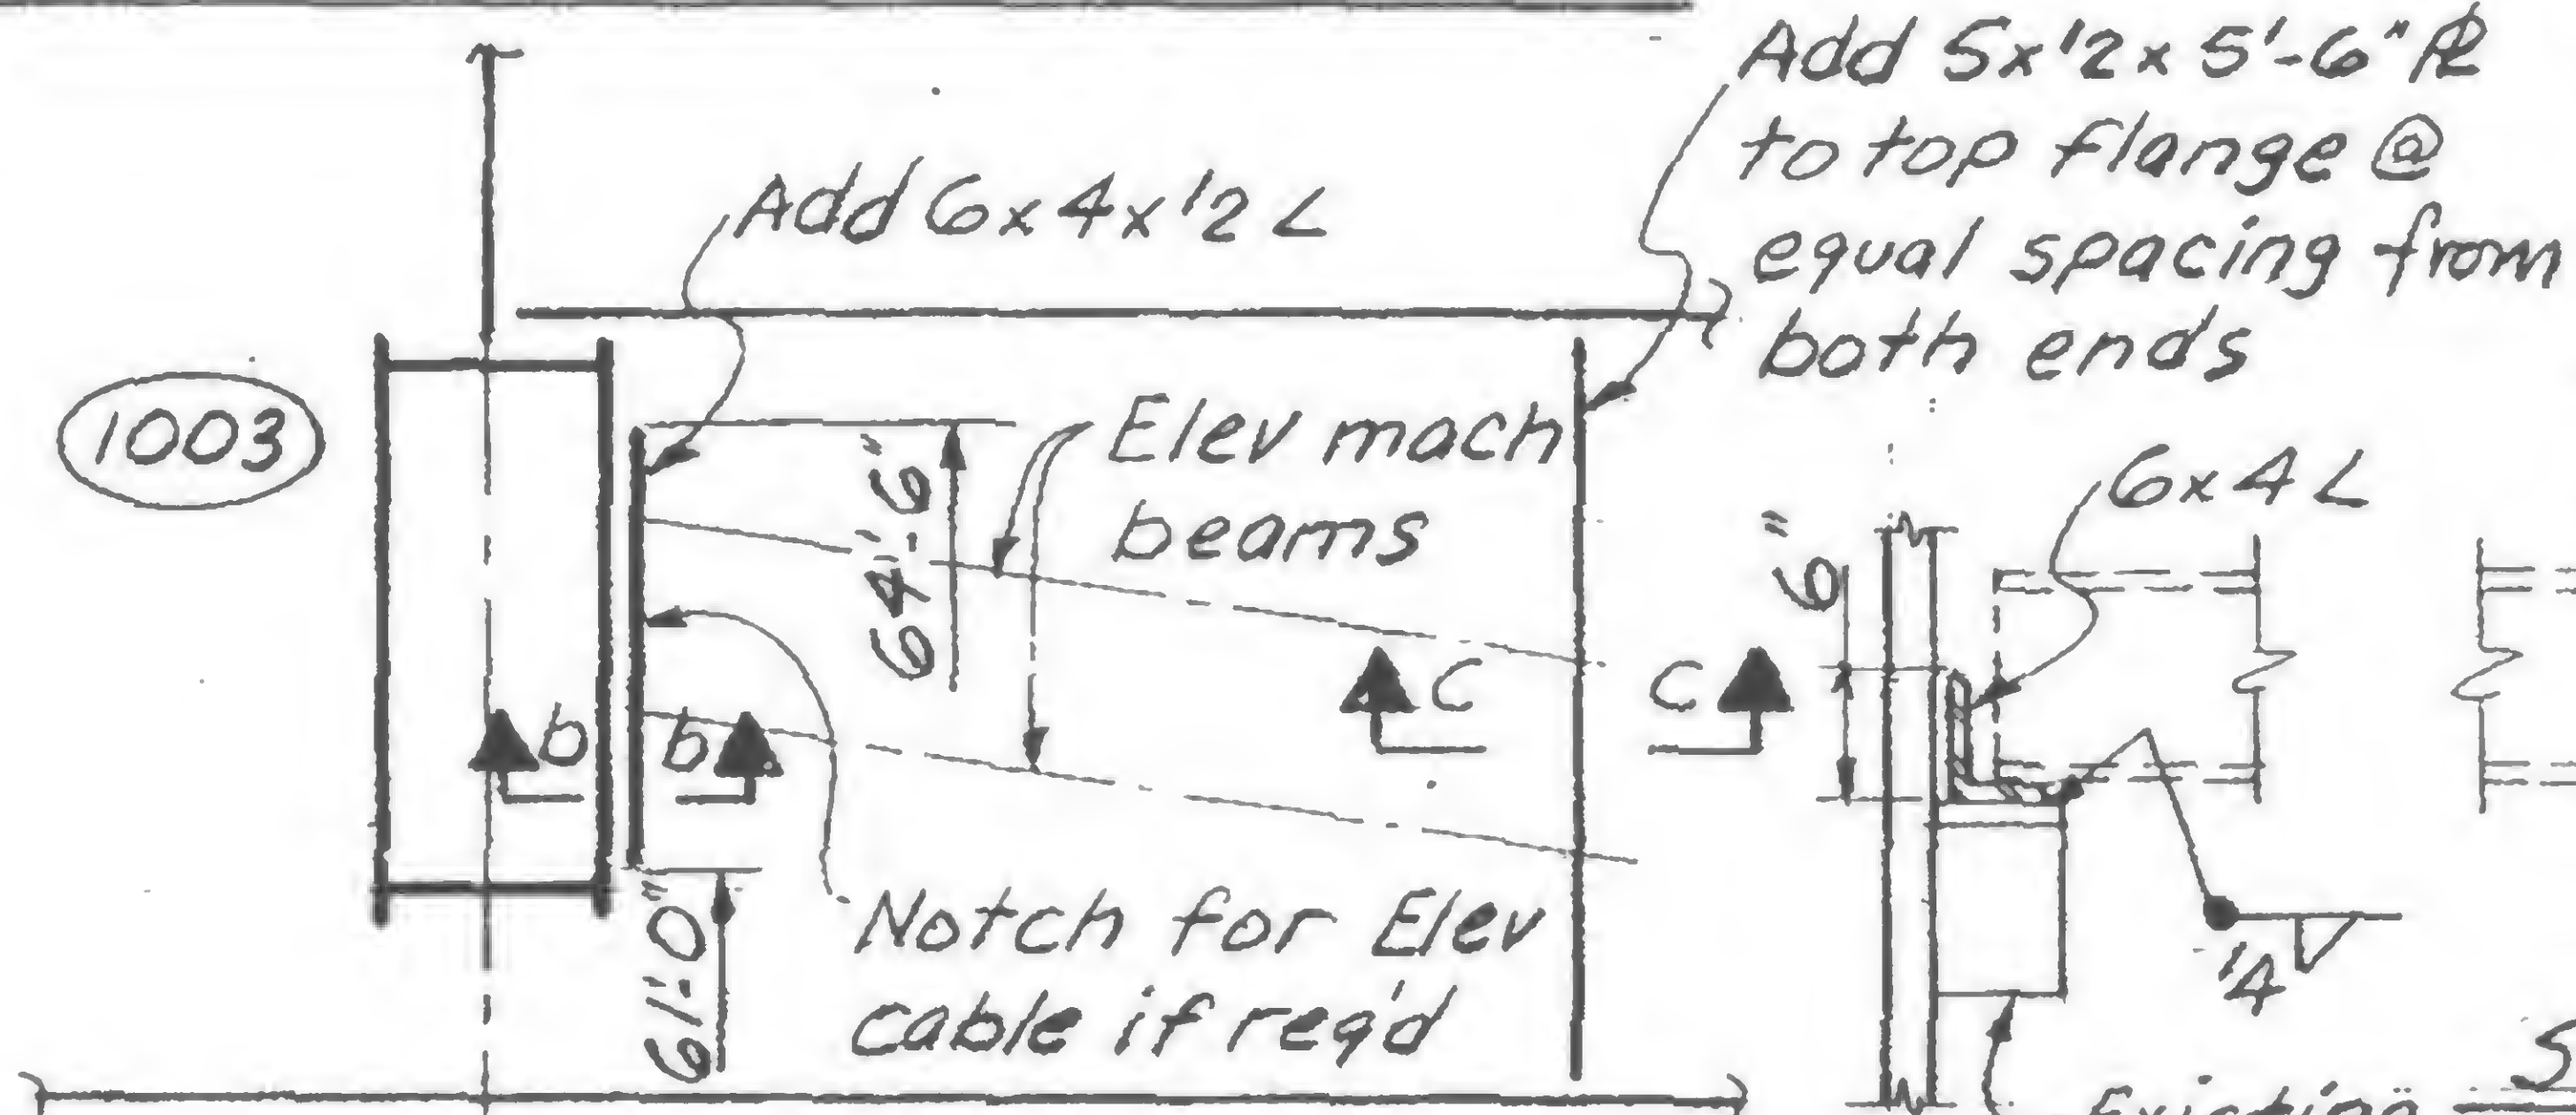 Add 5x1/2x5'-6" PL
to top flange @
equal spacing from
both ends
Add 6x4x1/2 L
1003
Elev mach
beams
64'-6"
6x4 L
6"
b b
C C
Notch for Elev
cable if req'd
61'-0"
1/4
Existing
S